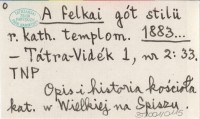 A Felkai gót stilü
r. kath. templom. 1883...
– Tátra-Vidék 1, nr 2: 33.
TNP
Opis i historia kościoła
kat. w Wielkiej na Spiszu.